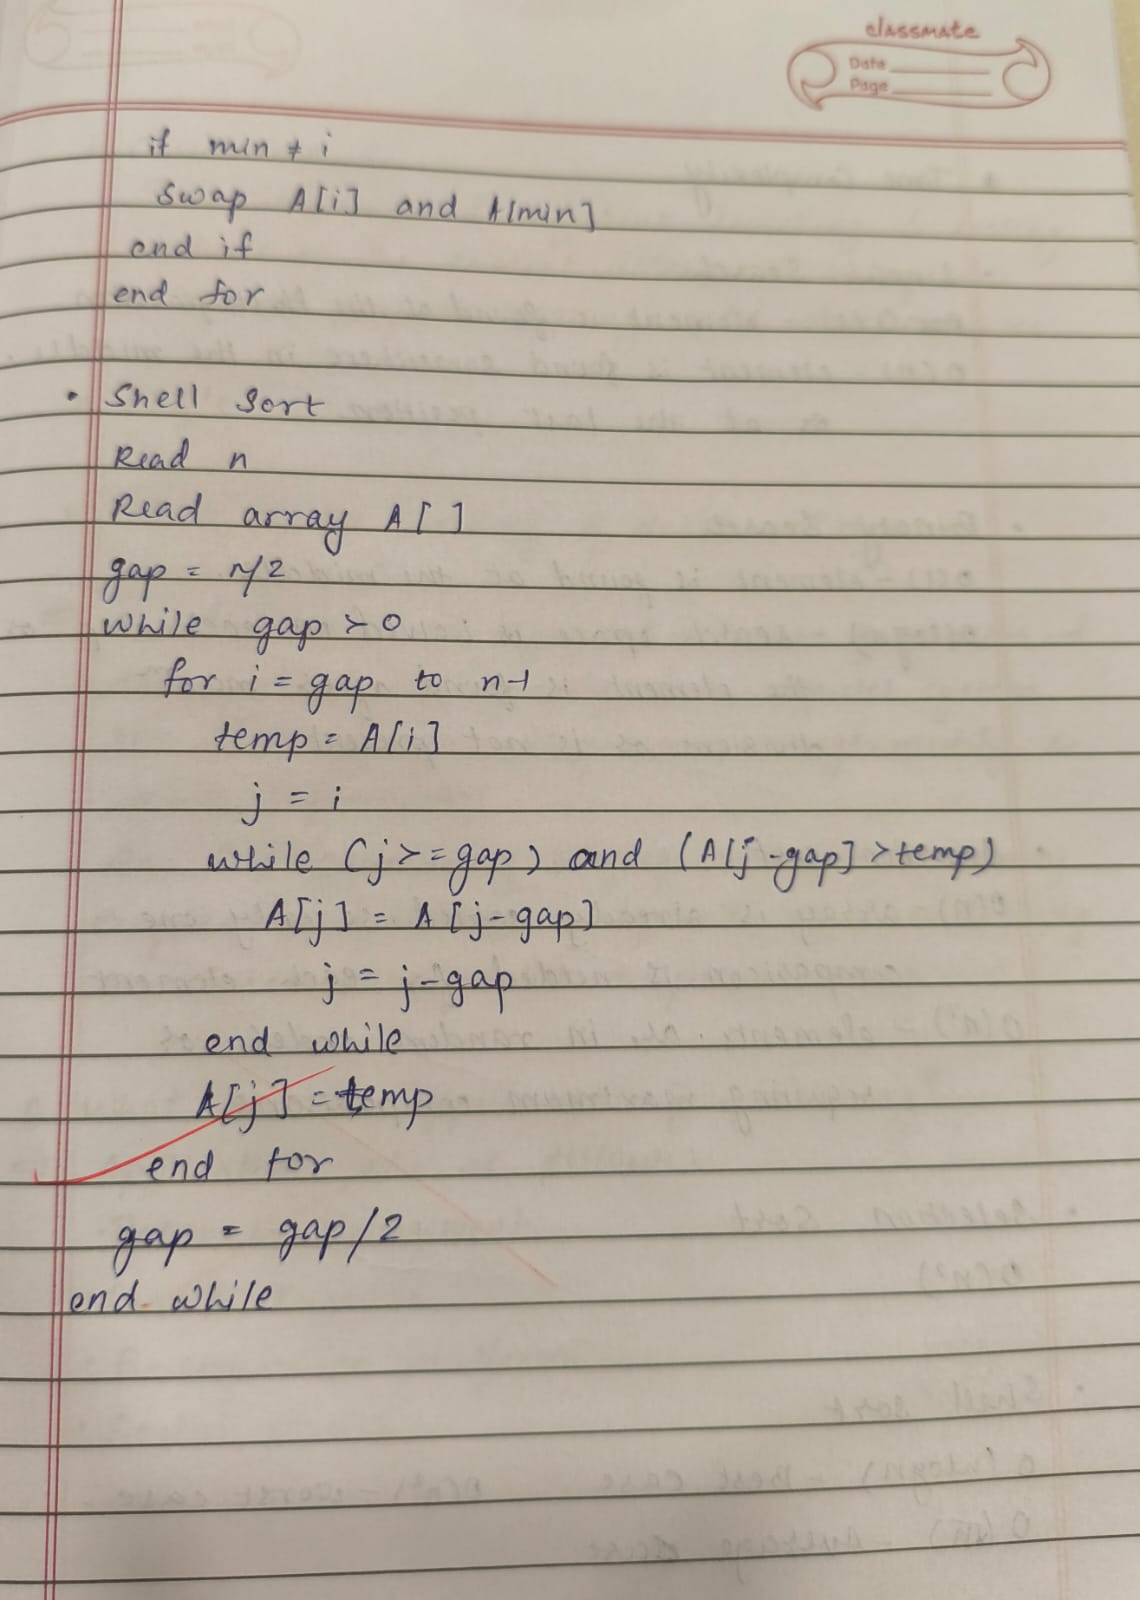 classmate
Date
Page
if min ≠ i
Swap A[i] and A[min]
end if
end for
• Shell Sort
Read n
Read array A[ ]
gap = n/2
while gap > 0
for i = gap to n-1
temp = A[i]
j = i
while (j >= gap) and (A[j-gap] > temp)
A[j] = A[j-gap]
j = j-gap
end while
A[j] = temp
end for
gap = gap/2
end while